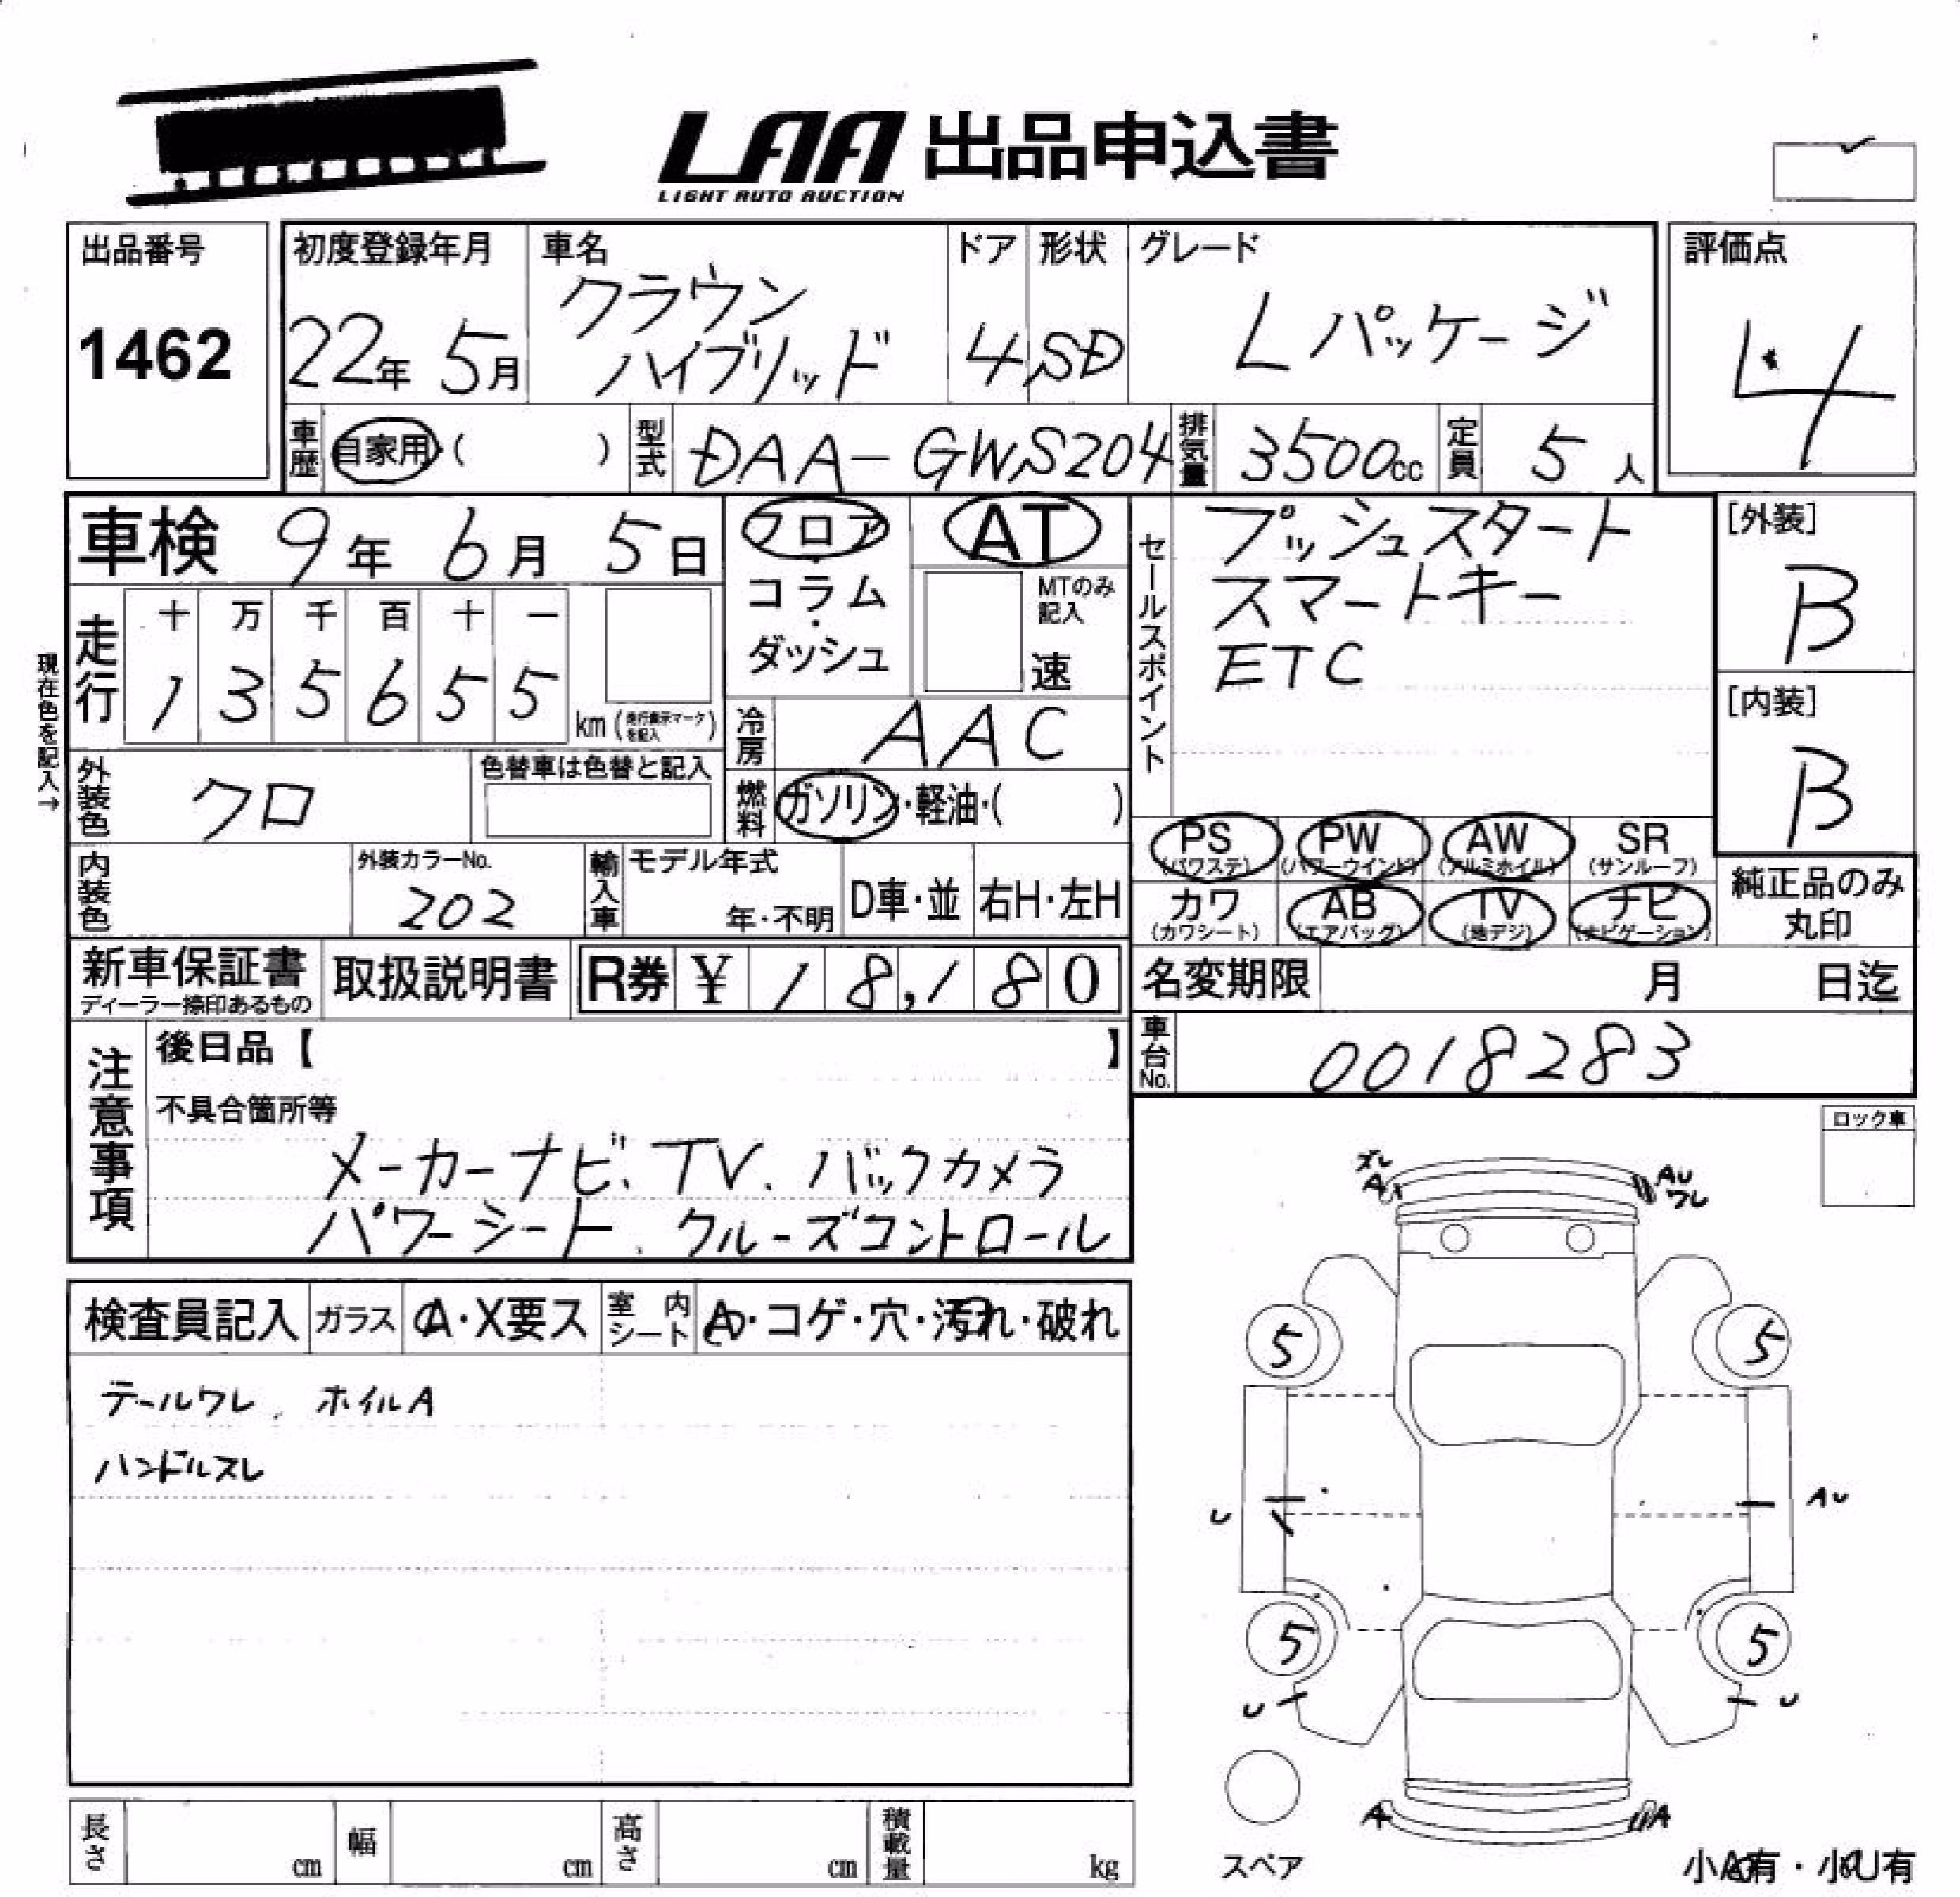 LAA 出品申込書
LIGHT AUTO AUCTION
出品番号
1462
初度登録年月
22年 5月
車名
クラウン
ハイブリッド
ドア
4
形状
SD
グレード
Lパッケージ
評価点
4
車歴
自家用・( )
型式
DAA-GWS204
排気量
3500cc
定員
5人
車検 9年 6月 5日
フロア
・
コラム
・
ダッシュ
AT
MTのみ
記入
速
セールスポイント
プッシュスタート
スマートキー
ETC
[外装]
B
[内装]
B
現在色を記入→
走行
十 万 千 百 十 一
1 3 5 6 5 5
km (走行表示マークを記入)
冷房
AAC
外装色
クロ
色替車は色替と記入
燃料
ガソリン・軽油・( )
PS
(パワステ)
PW
(パワーウインド)
AW
(アルミホイル)
SR
(サンルーフ)
カワ
(カワシート)
AB
(エアバッグ)
TV
(地デジ)
ナビ
(ナビゲーション)
純正品のみ
丸印
内装色
外装カラーNo.
202
輸入車
モデル年式
年・不明
D車・並
右H・左H
新車保証書
ディーラー捺印あるもの
取扱説明書
R券 ¥ 18,180
名変期限 月 日迄
車台No.
0018283
注意事項
後日品【 】
不具合箇所等
メーカーナビ、TV、バックカメラ
パワーシート、クルーズコントロール
ロック車
検査員記入
ガラス
A・X要ス
室内
シート
A・コゲ・穴・汚れ・破れ
テールワレ、ホイルA
ハンドルスレ
スレ
A
AU
ワレ
5
5
U
AU
5
5
U
U
A
A
スペア
小A有・小U有
長さ cm
幅 cm
高さ cm
積載量 kg